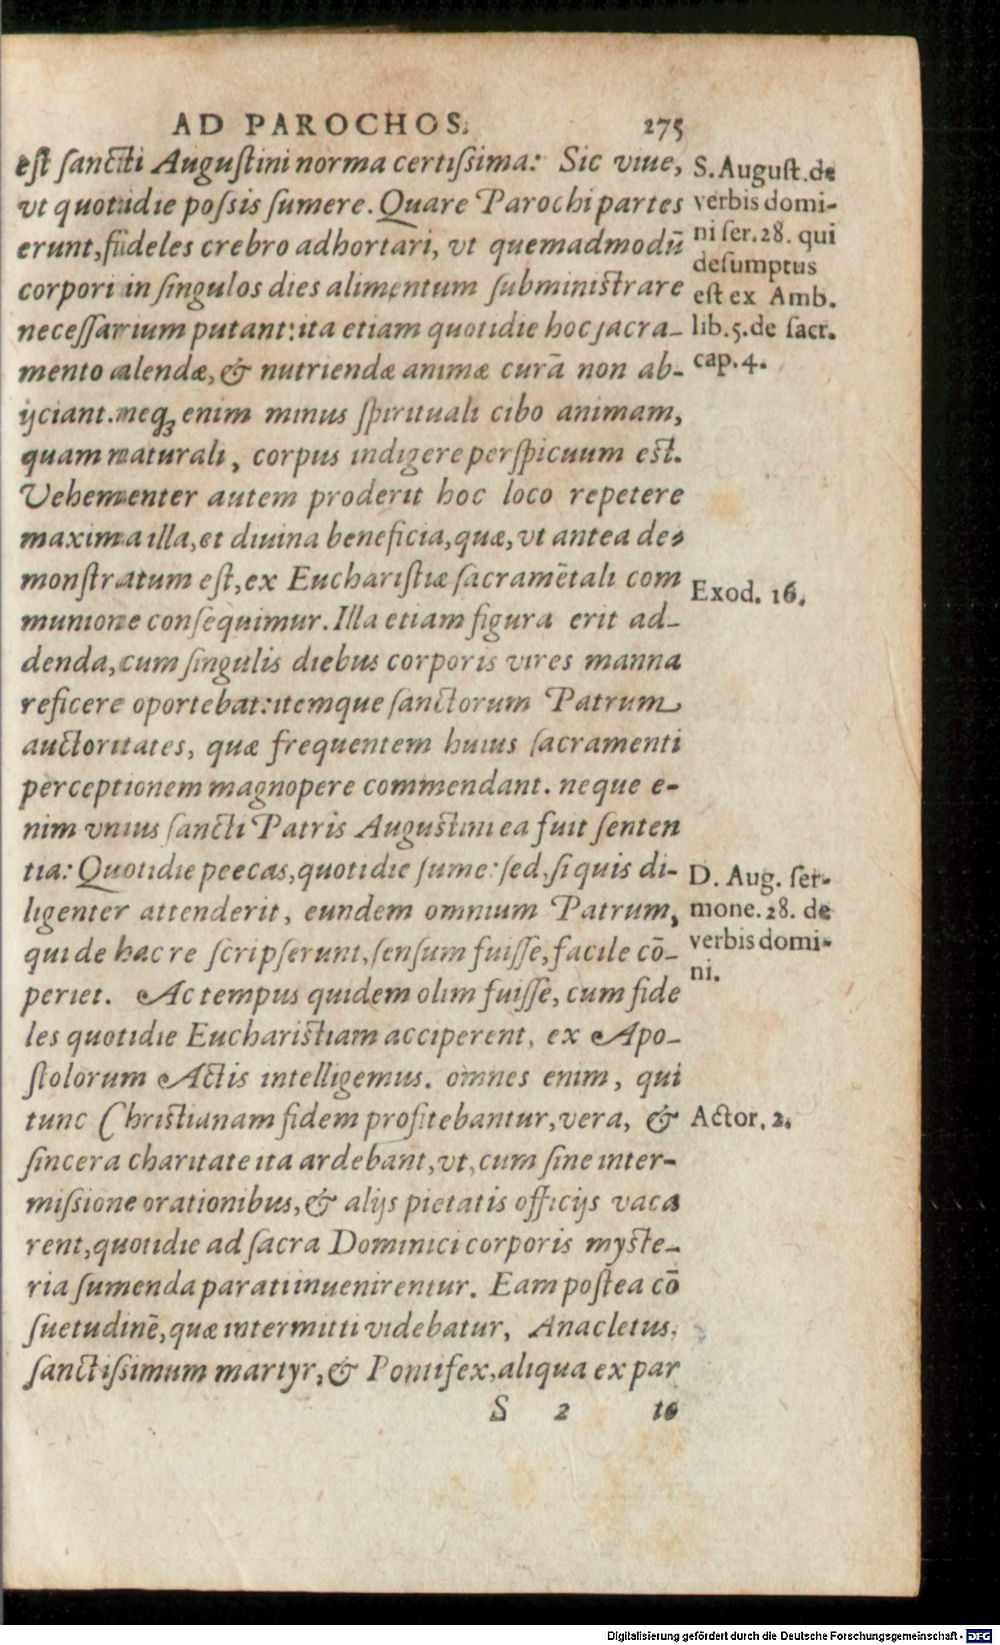 AD PAROCHOS. 275
est sancti Augustini norma certissima: Sic viue,
vt quotidie possis sumere. Quare Parochi partes
erunt, fideles crebro adhortari, vt quemadmodū
corpori in singulos dies alimentum subministrare
necessarium putant: ita etiam quotidie hoc sacra-
mento alendæ, & nutriendæ animæ curā non ab-
ijciant. neq₃ enim minus spirituali cibo animam,
quam naturali, corpus indigere perspicuum est.
Vehementer autem proderit hoc loco repetere
maxima illa, et diuina beneficia, quæ, vt antea de-
monstratum est, ex Eucharistiæ sacramētali com
munione consequimur. Illa etiam figura erit ad-
denda, cum singulis diebus corporis vires manna
reficere oportebat: itemque sanctorum Patrum
auctoritates, quæ frequentem huius sacramenti
perceptionem magnopere commendant. neque e-
nim vnius sancti Patris Augustini ea fuit senten
tia: Quotidie peccas, quotidie sume: sed, si quis di-
ligenter attenderit, eundem omnium Patrum,
qui de hac re scripserunt, sensum fuisse, facile cō-
periet. Ac tempus quidem olim fuisse, cum fide
les quotidie Eucharistiam acciperent, ex Apo-
stolorum Actis intelligemus. omnes enim, qui
tunc Christianam fidem profitebantur, vera, &
sincera charitate ita ardebant, vt, cum sine inter-
missione orationibus, & alijs pietatis officijs vaca
rent, quotidie ad sacra Dominici corporis myste-
ria sumenda parati inuenirentur. Eam postea cō
suetudinē, quæ intermitti videbatur, Anacletus,
sanctissimum martyr, & Pontifex, aliqua ex par
S 2 te
S. August. de
verbis domi-
ni ser. 28. qui
desumptus
est ex Amb.
lib. 5. de sacr.
cap. 4.
Exod. 16.
D. Aug. ser-
mone. 28. de
verbis domi-
ni.
Actor. 2.
Digitalisierung gefördert durch die Deutsche Forschungsgemeinschaft - DFG